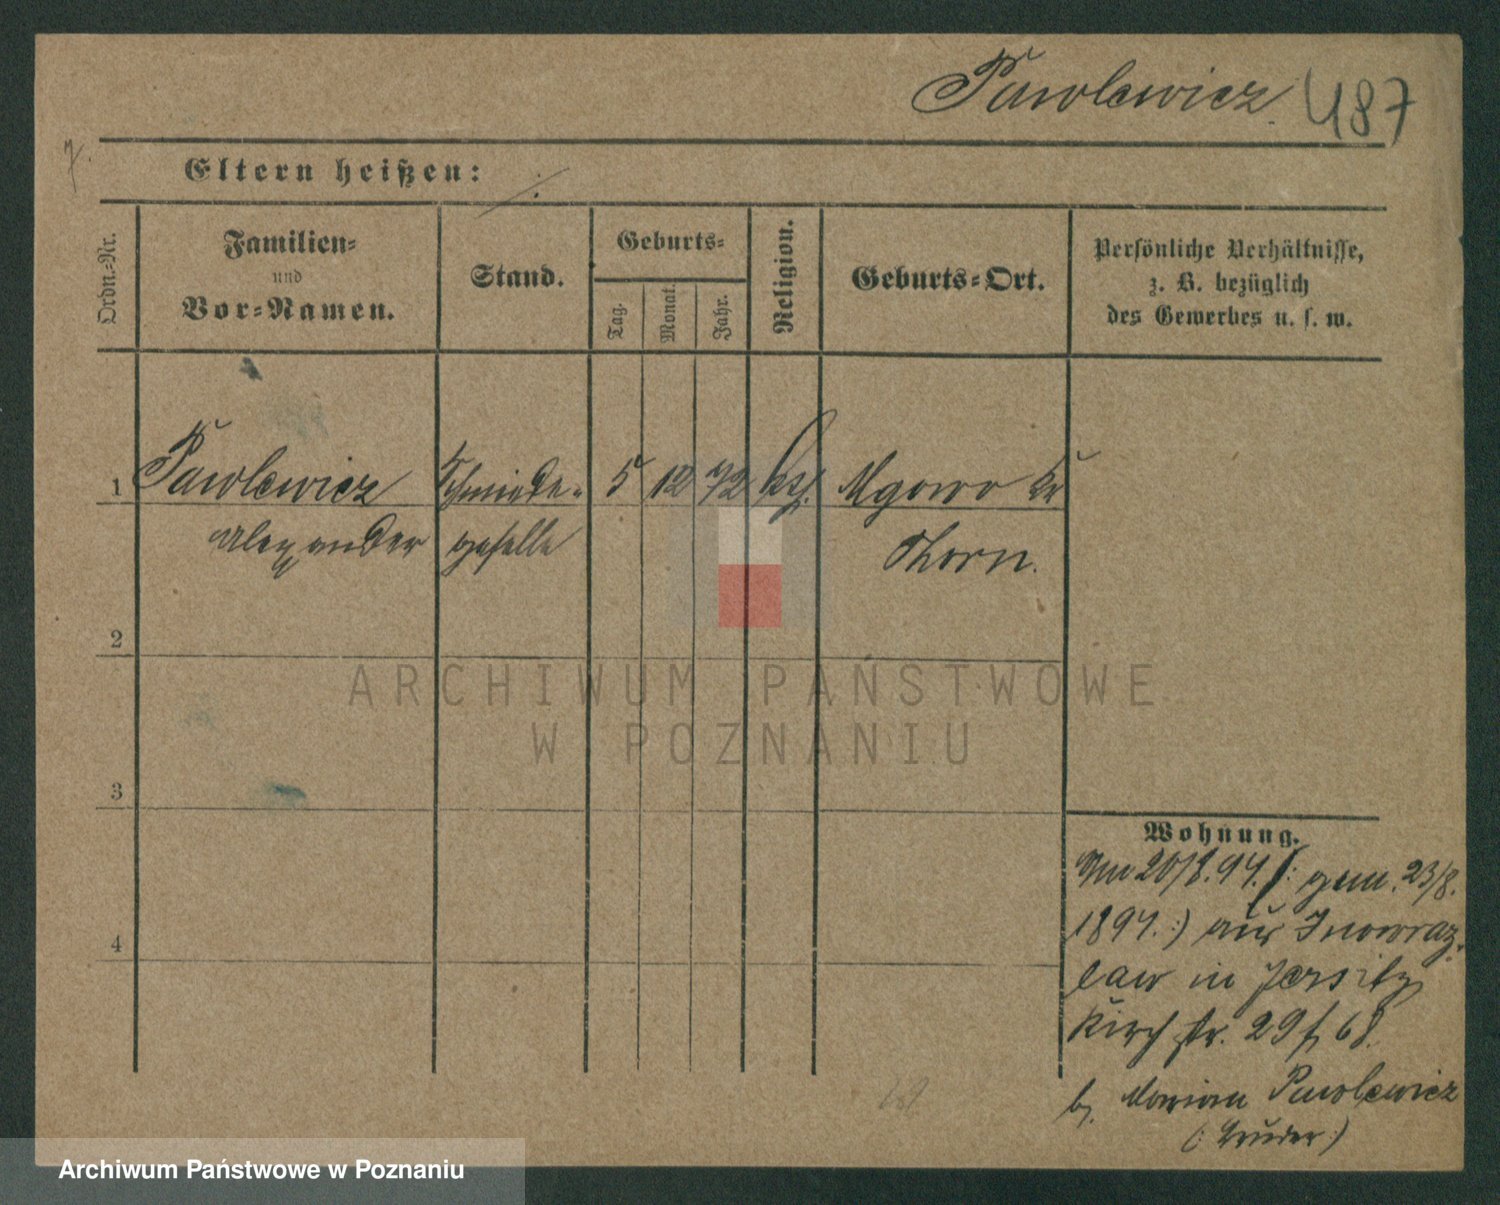 Pawlewicz. 487
7.
Eltern heißen: ./.
Ordn.-Nr.
Familien-
und
Vor-Namen.
Stand.
Geburts-
Tag.
Monat.
Jahr.
Religion.
Geburts-Ort.
Persönliche Verhältnisse,
z. B. bezüglich
des Gewerbes u. s. w.
1 Pawlewicz Schmiede- 5 12 72 kth. Mgowo Kr
Alexander geselle Thorn.
2
3
4
Wohnung.
Am 20/8.94. (: gem. 23/8.
1894.:) aus Inowraz-
law in Jersitz
Kirchstr. 29 f 68.
b. Marian Pawlewicz
(: Bruder :)
ARCHIWUM PAŃSTWOWE
W POZNANIU
Archiwum Państwowe w Poznaniu